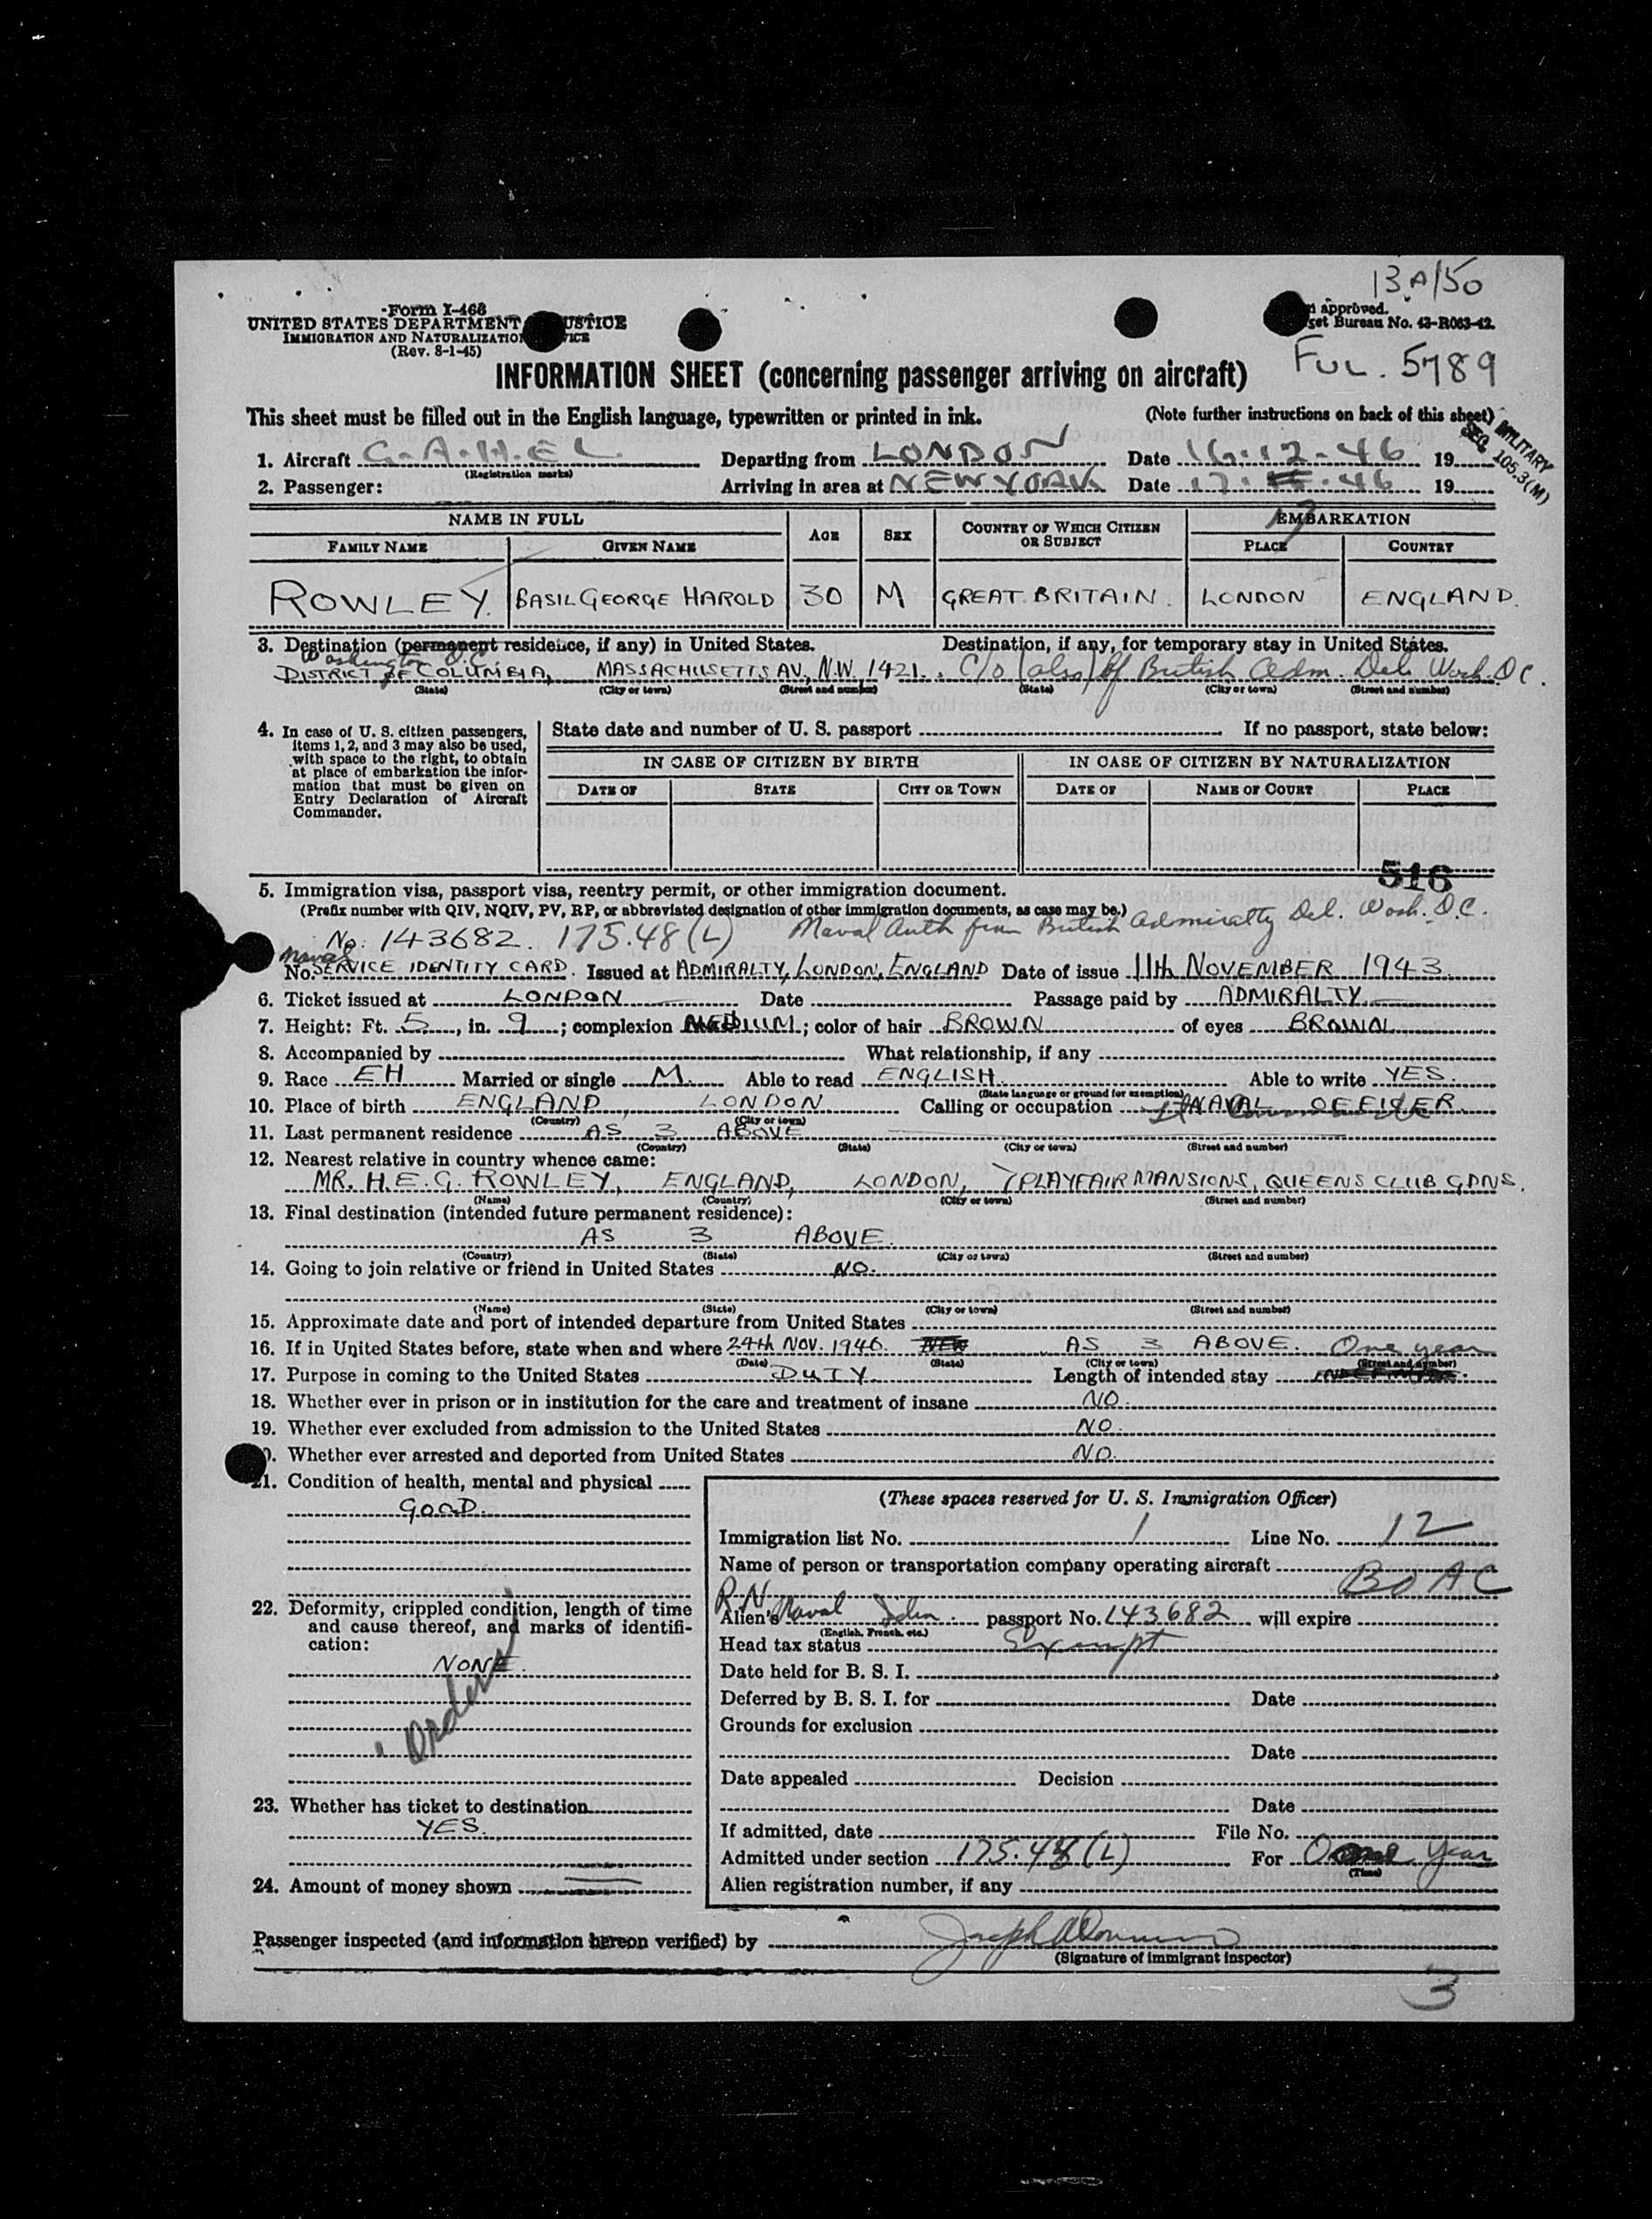 13A/50
Form I-466
UNITED STATES DEPARTMENT JUSTICE
IMMIGRATION AND NATURALIZATION
(Rev. 8-1-45)
approved.
Bureau No. 43-R063-42.
FUL. 5789
INFORMATION SHEET (concerning passenger arriving on aircraft)
This sheet must be filled out in the English language, typewritten or printed in ink. (Note further instructions on back of this sheet)
MILITARY
SEC. 105.3(M)
1. Aircraft G.A.H.E.L (Registration marks) Departing from LONDON Date 16.12.46 19
2. Passenger: Arriving in area at NEW YORK Date 17. 12 .46 19
NAME IN FULL AGE SEX COUNTRY OF WHICH CITIZEN OR SUBJECT EMBARKATION
FAMILY NAME GIVEN NAME PLACE COUNTRY
ROWLEY. BASIL GEORGE HAROLD 30 M GREAT BRITAIN. LONDON ENGLAND.
3. Destination (permanent residence, if any) in United States. Destination, if any, for temporary stay in United States.
Washington D.C.
DISTRICT OF COLUMBIA, MASSACHUSETTS AV., N.W, 1421. C/o (also) Bf British Adm. Del. Wash. D.C.
(State) (City or town) (Street and number) (State) (City or town) (Street and number)
4. In case of U. S. citizen passengers, items 1, 2, and 3 may also be used, with space to the right, to obtain at place of embarkation the information that must be given on Entry Declaration of Aircraft Commander.
State date and number of U. S. passport If no passport, state below:
IN CASE OF CITIZEN BY BIRTH IN CASE OF CITIZEN BY NATURALIZATION
DATE OF STATE CITY OR TOWN DATE OF NAME OF COURT PLACE
516
5. Immigration visa, passport visa, reentry permit, or other immigration document.
(Prefix number with QIV, NQIV, PV, RP, or abbreviated designation of other immigration documents, as case may be.)
No. 143682. 175.48(L) Naval Auth from British Admiralty Del. Wash. D.C.
Naval
No. SERVICE IDENTITY CARD. Issued at ADMIRALTY, LONDON, ENGLAND Date of issue 11th NOVEMBER 1943.
6. Ticket issued at LONDON Date Passage paid by ADMIRALTY.
7. Height: Ft. 5, in. 9; complexion MEDIUM; color of hair BROWN of eyes BROWN
8. Accompanied by What relationship, if any
9. Race EH Married or single M. Able to read ENGLISH. Able to write YES.
(State language or ground for exemption)
10. Place of birth ENGLAND, LONDON Calling or occupation NAVAL OFFICER.
(Country) (City or town)
11. Last permanent residence AS 3 ABOVE
(Country) (State) (City or town) (Street and number)
12. Nearest relative in country whence came:
MR. H.E.G. ROWLEY, ENGLAND, LONDON, 7 PLAYFAIR MANSIONS, QUEENS CLUB GDNS.
(Name) (Country) (City or town) (Street and number)
13. Final destination (intended future permanent residence):
AS 3 ABOVE.
(Country) (State) (City or town) (Street and number)
14. Going to join relative or friend in United States NO.
(Name) (State) (City or town) (Street and number)
15. Approximate date and port of intended departure from United States
16. If in United States before, state when and where 24th NOV. 1946. NEW AS 3 ABOVE. One year
(Date) (State) (City or town) (Street and number)
17. Purpose in coming to the United States DUTY Length of intended stay
18. Whether ever in prison or in institution for the care and treatment of insane NO.
19. Whether ever excluded from admission to the United States NO.
0. Whether ever arrested and deported from United States NO.
21. Condition of health, mental and physical
GOOD.
22. Deformity, crippled condition, length of time and cause thereof, and marks of identification:
NONE.
Orders
23. Whether has ticket to destination
YES.
24. Amount of money shown
(These spaces reserved for U. S. Immigration Officer)
Immigration list No. 1 Line No. 12
Name of person or transportation company operating aircraft
BOAC
R.N.
Alien's Naval Iden. passport No. 143682 will expire
(English, French, etc.)
Head tax status Exempt
Date held for B. S. I.
Deferred by B. S. I. for Date
Grounds for exclusion
Date
Date appealed Decision
Date
If admitted, date File No.
Admitted under section 175.48(L) For One Year
(Time)
Alien registration number, if any
Passenger inspected (and information hereon verified) by
(Signature of immigrant inspector)
3